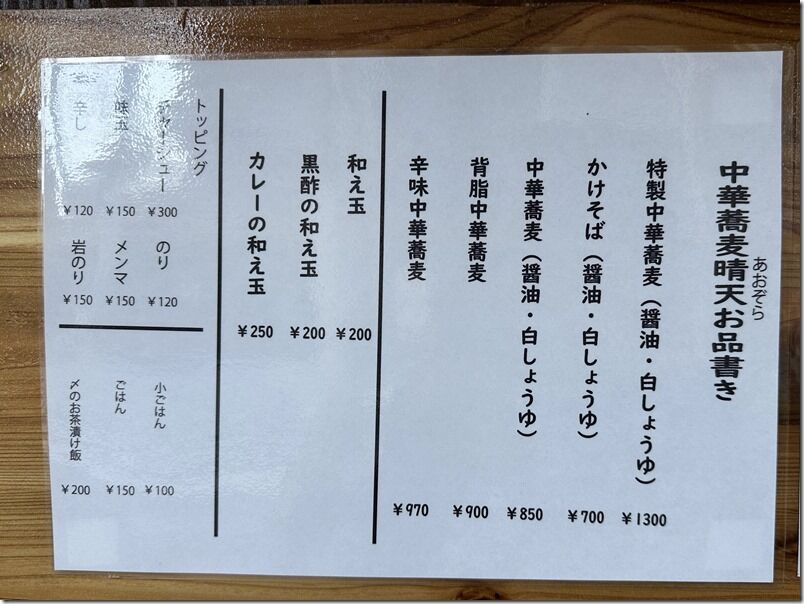 中華蕎麦晴天お品書き
あおぞら
特製中華蕎麦（醤油・白しょうゆ）
￥1300
かけそば（醤油・白しょうゆ）
￥700
中華蕎麦（醤油・白しょうゆ）
￥850
背脂中華蕎麦
￥900
辛味中華蕎麦
￥970
和え玉
￥200
黒酢の和え玉
￥200
カレーの和え玉
￥250
トッピング
チャーシュー
￥300
味玉
￥150
辛し
￥120
のり
￥120
メンマ
￥150
岩のり
￥150
小ごはん
￥100
ごはん
￥150
〆のお茶漬け飯
￥200